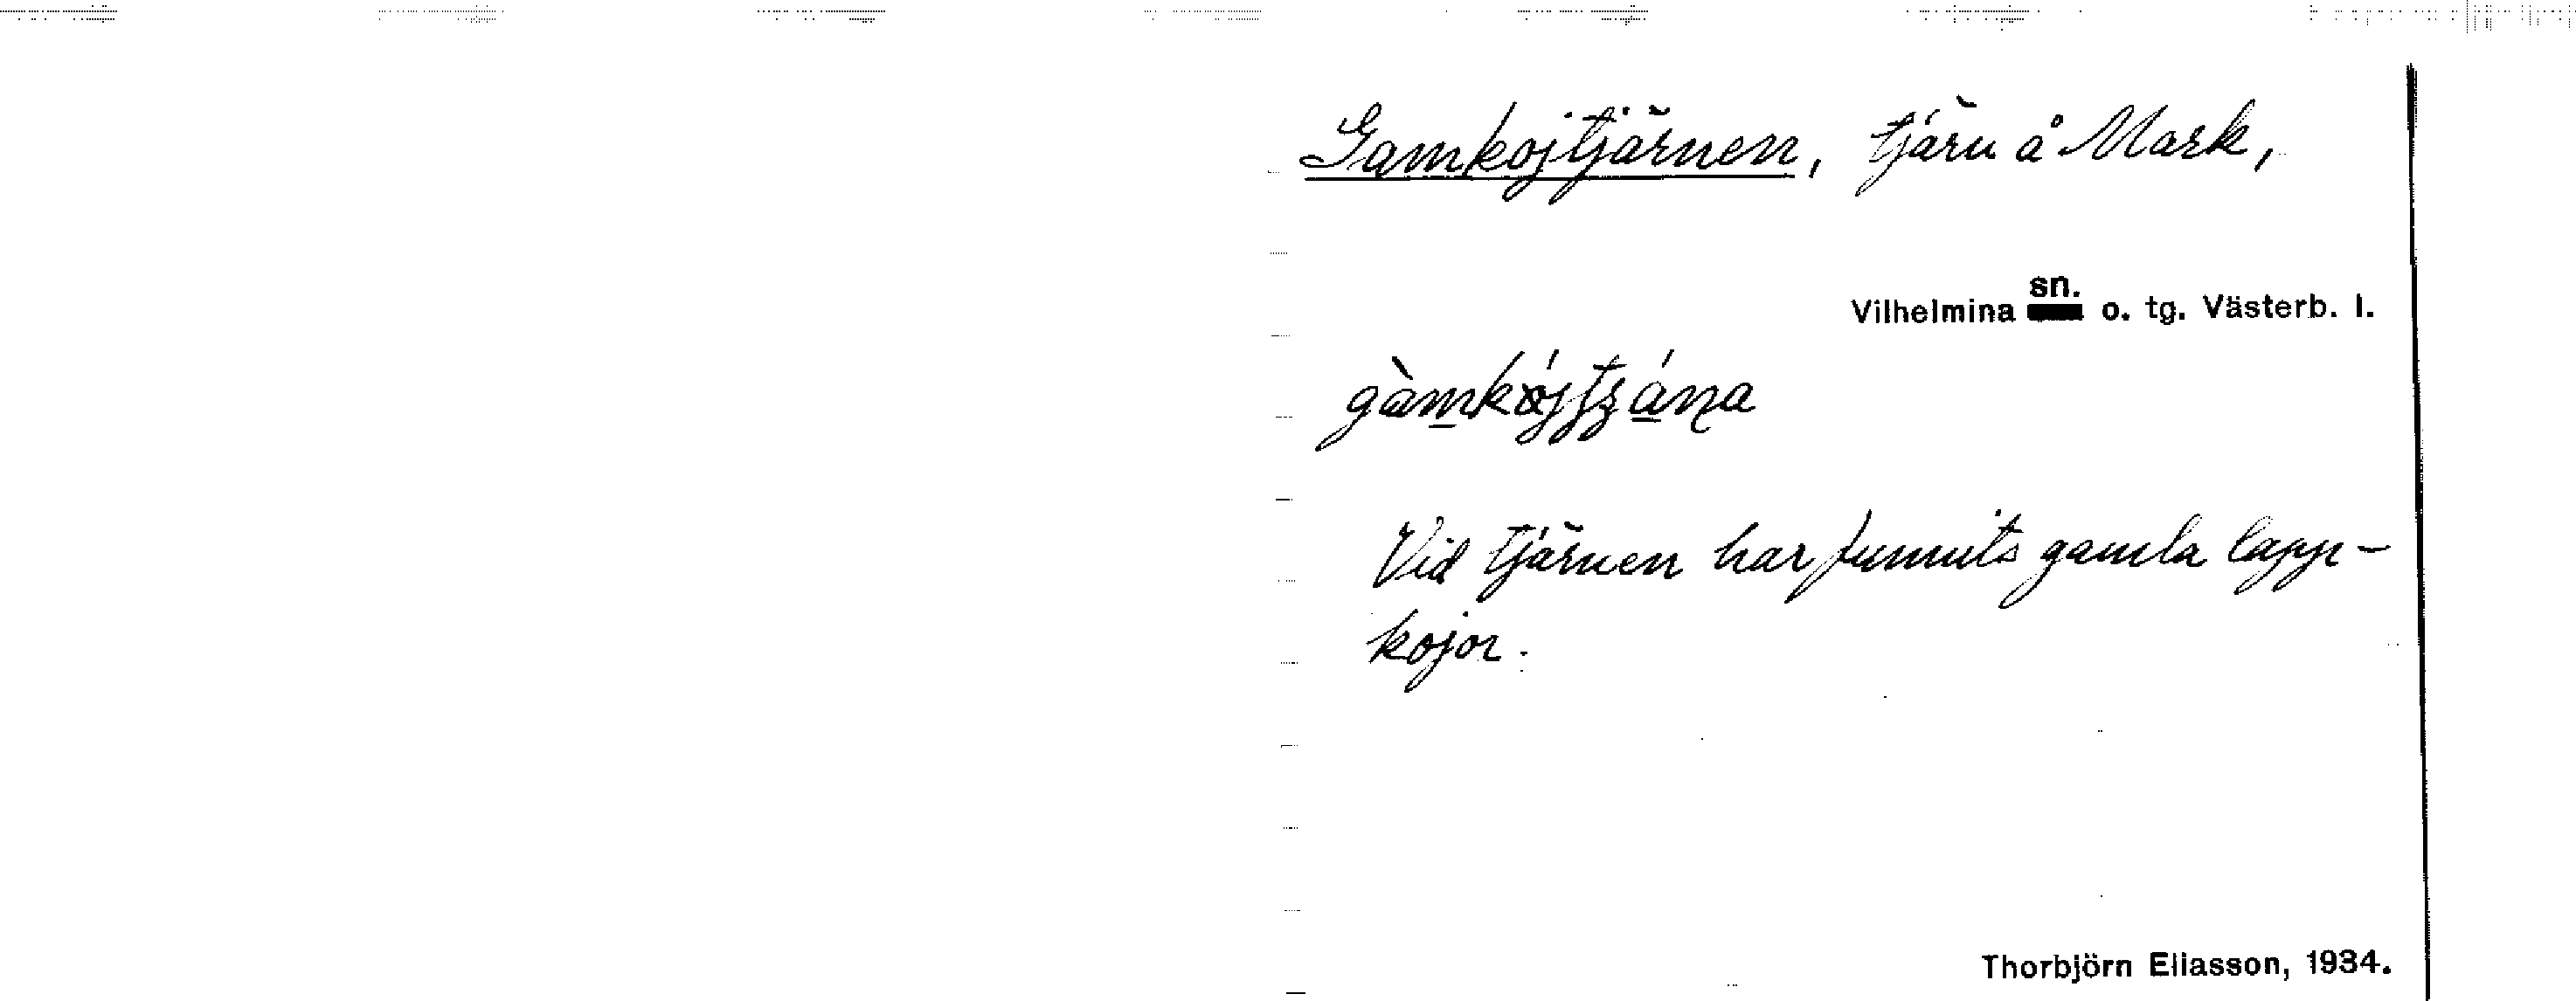 Gamkojtjärnen, tjärn å Mark,
Vilhelmina sn. o. tg. Västerb. l.
Vid tjärnen har funnits gamla lapp-
kojor.
Thorbjörn Eliasson, 1934.